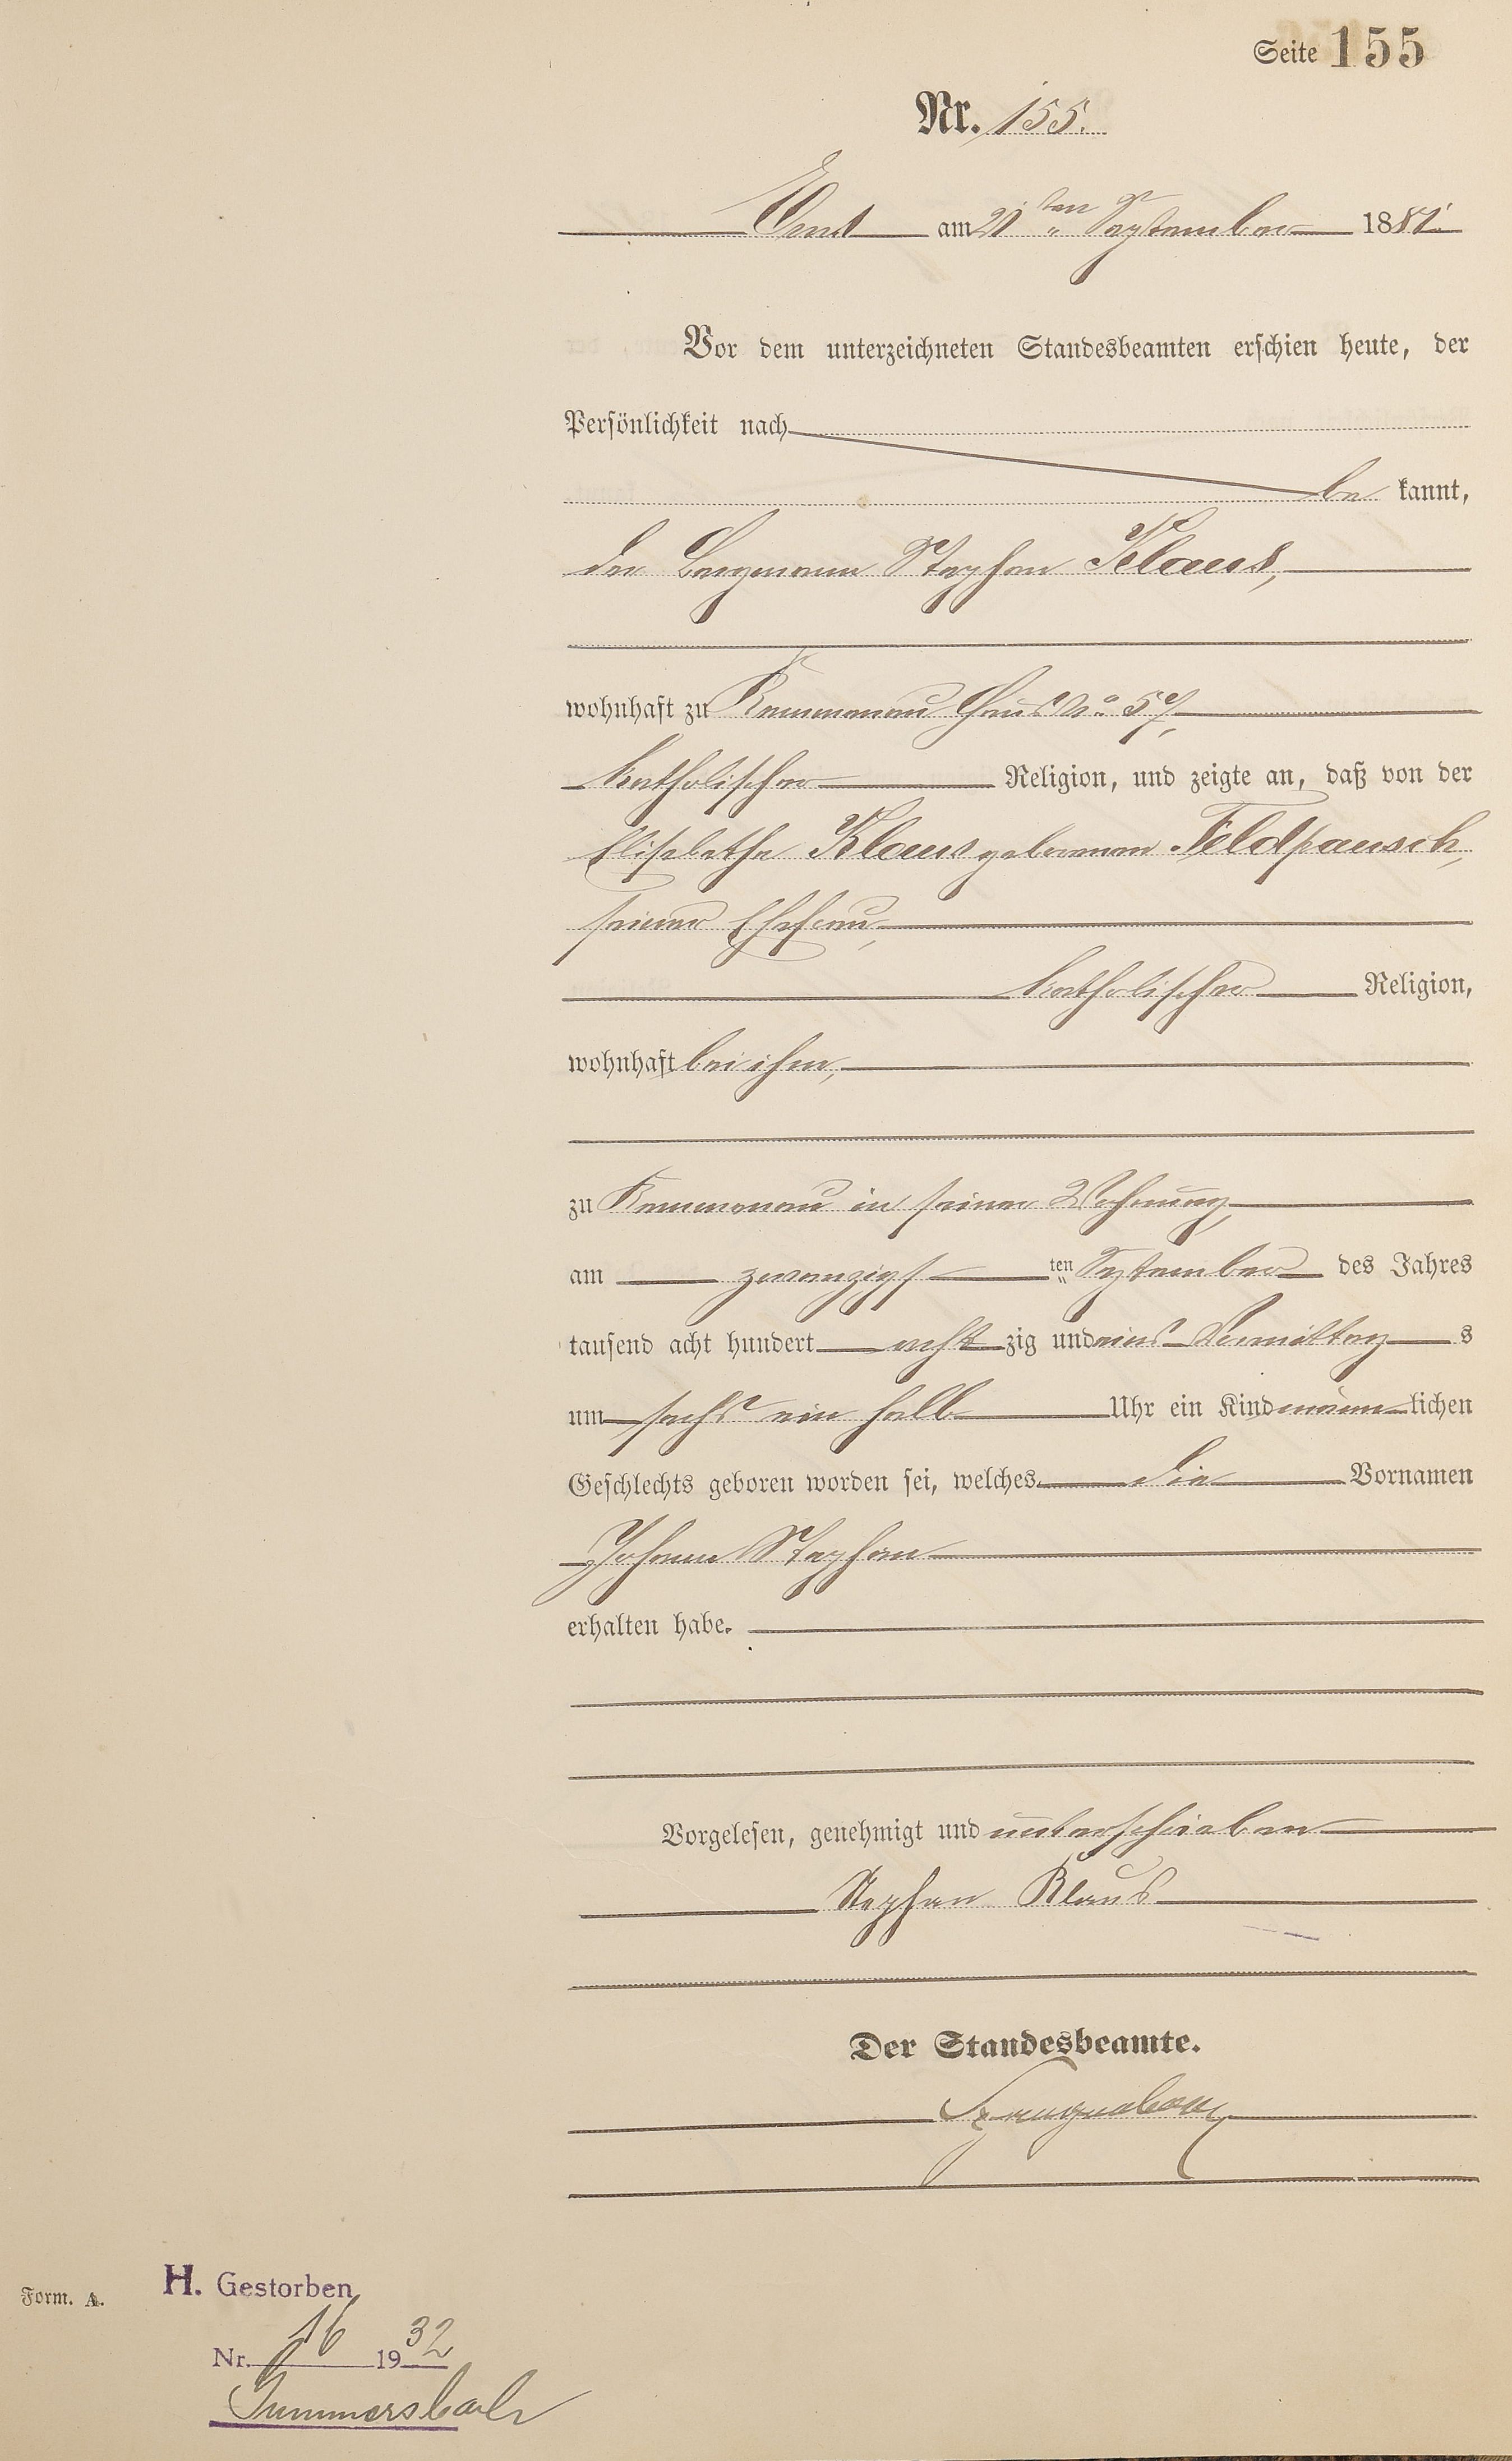 Seite 155
Nr. 155.
Ems am 21ten September 1881.
Vor dem unterzeichneten Standesbeamten erschien heute, der
Persönlichkeit nach
be kannt,
der Bergmann Stephan Klaus,
wohnhaft zu Kemmenau Haus No 57,
katholischer Religion, und zeigte an, daß von der
Elisabetha Klaus geborenen Feldpausch,
seiner Ehefrau,
katholischer Religion,
wohnhaft bei ihm,
zu Kemmenau in seiner Wohnung,
am zwanzigsten September des Jahres
tausend acht hundert acht zig und eins Vormittag s
um sechs ein halb Uhr ein Kind männ lichen
Geschlechts geboren worden sei, welches die Vornamen
Johann Stephan
erhalten habe.
Vorgelesen, genehmigt und unterschrieben
Stephan Klaus
Der Standesbeamte.
Form. A.
H. Gestorben
Nr. 16 1932
Gummersbach